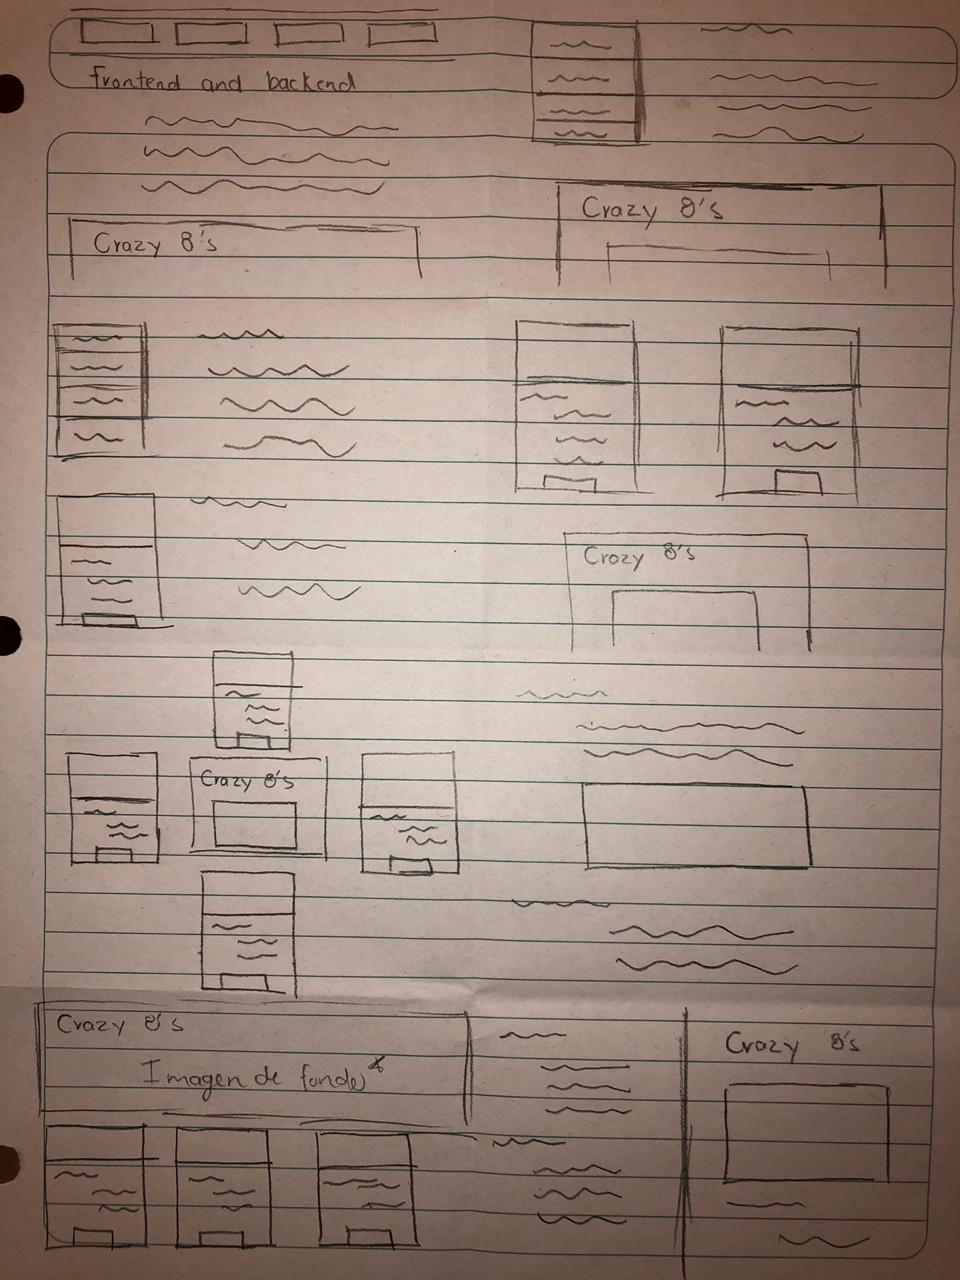 frontend and backend
Crazy 8's
Crazy 8's
Crazy 8's
Crazy 8's
Crazy 8's
Imagen de fondo*
Crazy 8's